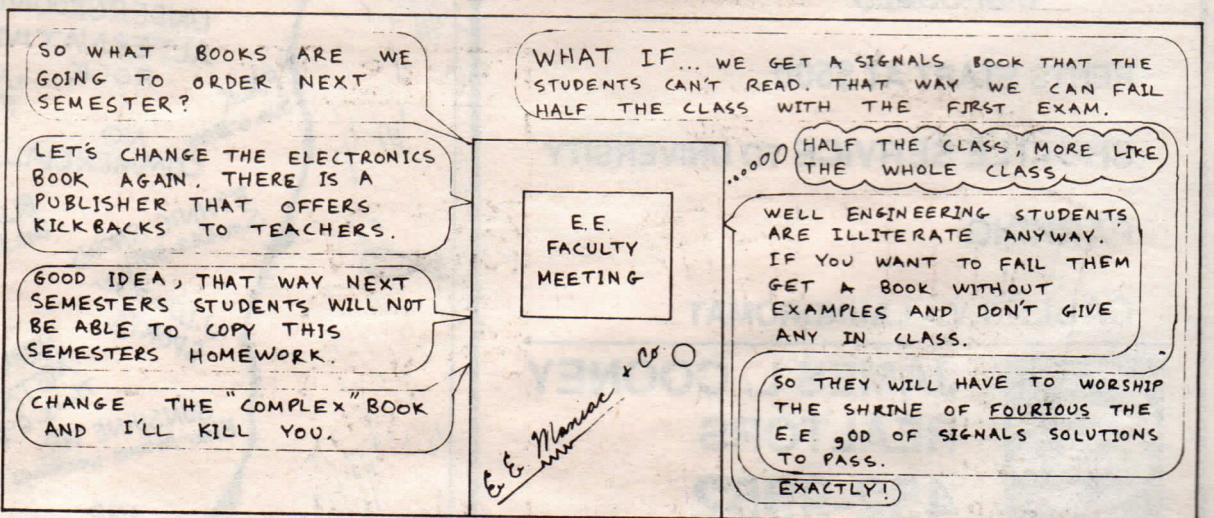 SO WHAT BOOKS ARE WE
GOING TO ORDER NEXT
SEMESTER?
LET'S CHANGE THE ELECTRONICS
BOOK AGAIN. THERE IS A
PUBLISHER THAT OFFERS
KICKBACKS TO TEACHERS.
GOOD IDEA, THAT WAY NEXT
SEMESTERS STUDENTS WILL NOT
BE ABLE TO COPY THIS
SEMESTERS HOMEWORK.
CHANGE THE "COMPLEX" BOOK
AND I'LL KILL YOU.
E.E.
FACULTY
MEETING
E E Maniac x Co
WHAT IF... WE GET A SIGNALS BOOK THAT THE
STUDENTS CAN'T READ. THAT WAY WE CAN FAIL
HALF THE CLASS WITH THE FIRST EXAM.
HALF THE CLASS, MORE LIKE
THE WHOLE CLASS
WELL ENGINEERING STUDENTS
ARE ILLITERATE ANYWAY.
IF YOU WANT TO FAIL THEM
GET A BOOK WITHOUT
EXAMPLES AND DON'T GIVE
ANY IN CLASS.
SO THEY WILL HAVE TO WORSHIP
THE SHRINE OF FOURIOUS THE
E.E. gOD OF SIGNALS SOLUTIONS
TO PASS.
EXACTLY!